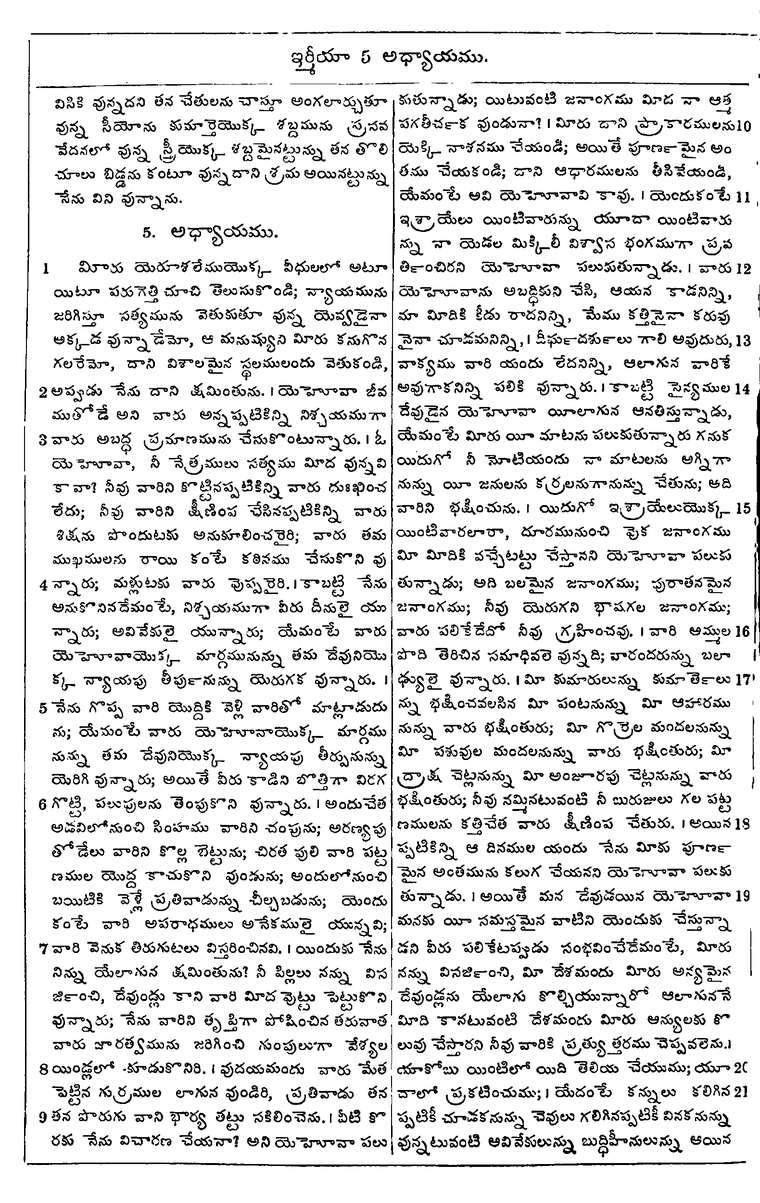 ఇర్మీయా 5 అధ్యాయము.
విసికి వున్నదని తన చేతులను చాస్తూ అంగలార్చుతూ
వున్న సీయోను కుమార్తెయొక్క శబ్దమును ప్రసవ
వేదనలో వున్న స్త్రీయొక్క శబ్దమైనట్టున్ను తన తొలి
చూలు బిడ్డను కంటూ వున్న దాని శ్రమ అయినట్టున్ను
నేను విని వున్నాను.
5. అధ్యాయము.
1 మిారు యెరూశలేముయొక్క వీధులలో అటూ
యిటూ పరుగెత్తి చూచి తెలుసుకొండి; న్యాయమును
జరిగిస్తూ సత్యమును వెతుకుతూ వున్న యెవ్వడైనా
అక్కడ వున్నాడేమో, ఆ మనుష్యుని మిారు కనుగొన
గలరేమో, దాని విశాలమైన స్థలములందు వెతుకండి,
2 అప్పడు నేను దాని క్షమింతును. । యెహోవా జీవ
ముతోడే అని వారు అన్నప్పటికిన్ని నిశ్చయముగా
3 వారు అబద్ధ ప్రమాణమును చేసుకొంటున్నారు. । ఓ
యెహోవా, నీ నేత్రములు సత్యము మిాద వున్నవి
కావా? నీవు వారిని కొట్టినప్పటికిన్ని వారు దుఃఖించ
లేదు; నీవు వారిని క్షీణింప చేసినప్పటికిన్ని వారు
శిక్షను పొందుటకు అనుకూలించరైరి; వారు తమ
ముఖములను రాయి కంటే కఠినము చేసుకొని వు
4 న్నారు; మళ్లుటకు వారు వొప్పరైరి. । కాబట్టి నేను
అనుకొనినదేమంటే, నిశ్చయముగా వీరు దీనులై యు
న్నారు; అవివేకులై యున్నారు; యేమంటే వారు
యెహోవాయొక్క మార్గమునున్ను తమ దేవునియొ
క్క న్యాయపు తీర్పునున్ను యెరుగక వున్నారు. ।
5 నేను గొప్ప వారి యొద్దికి వెళ్లి వారితో మాట్లాడుదు
ను; యేమంటే వారు యెహోవాయొక్క మార్గము
నున్ను తమ దేవునియొక్క న్యాయపు తీర్పునున్ను
యెరిగి వున్నారు; అయితే వీరు కాడిని బొత్తిగా విరగ
6 గొట్టి, పలుపులను తెంపుకొని వున్నారు. । అందుచేత
అడవిలోనుంచి సింహము వారిని చంపును; అరణ్యపు
తోడేలు వారిని కొల్ల బెట్టును; చిరత పులి వారి పట్ట
ణముల యొద్ద కాచుకొని వుండును; అందులోనుంచి
బయిటికి వెళ్లే ప్రతివాడున్ను చీల్చబడును; యెందు
కంటే వారి అపరాధములు అనేకములై యున్నవి;
7 వారి వెనుక తిరుగుటలు విస్తరించినవి. । యిందుకు నేను
నిన్ను యేలాగున క్షమింతును? నీ పిల్లలు నన్ను విస
ర్జించి, దేవుండ్లు కాని వారి మిాద వొట్టు పెట్టుకొని
వున్నారు; నేను వారిని తృప్తిగా పోషించిన తరువాత
వారు జారత్వమును జరిగించి గుంపులుగా వేశ్యల
8 యిండ్లలో కూడుకొనిరి. । వుదయమందు వారు మేత
పెట్టిన గుర్రముల లాగున వుండిరి, ప్రతివాడు తన
9 తన పొరుగు వాని భార్య తట్టు సకిలించెను. । వీటి కొ
రకు నేను విచారణ చేయనా? అని యెహోవా పలు
కుతున్నాడు; యిటువంటి జనాంగము మిాద నా ఆత్మ
పగతీర్చక వుండునా? । మిారు దాని ప్రాకారములను 10
యెక్కి నాశనము చేయండి; అయితే పూర్ణమైన అం
తము చేయకండి; దాని ఆధారములను తీసివేయండి,
యేమంటే అవి యెహోవావి కావు. । యెందుకంటే 11
ఇశ్రాయేలు యింటివారున్ను యూదా యింటివారు
న్ను నా యెడల మిక్కిలీ విశ్వాస భంగముగా ప్రవ
ర్తించిరని యెహోవా పలుకుతున్నాడు. । వారు 12
యెహోవాను అబద్ధికుని చేసి, ఆయన కాడనిన్ని,
మా మిాదికి కీడు రాదనిన్ని, మేము కత్తినైనా కరువు
నైనా చూడమనిన్ని, । దీర్ఘదర్శులు గాలి అవుదురు, 13
వాక్యము వారి యందు లేదనిన్ని, ఆలాగున వారికే
అవుగాకనిన్ని పలికి వున్నారు. । కాబట్టి సైన్యముల 14
దేవుడైన యెహోవా యీలాగున ఆనతిస్తున్నాడు,
యేమంటే మిారు యీ మాటను పలుకుతున్నారు గనుక
యిదుగో నీ నోటియందు నా మాటలను అగ్నిగా
నున్ను యీ జనులను కర్రలనుగానున్ను చేతును; అది
వారిని భక్షించును. । యిదుగో ఇశ్రాయేలుయొక్క 15
యింటివారలారా, దూరమునుంచి వొక జనాంగము
మిా మిాదికి వచ్చేటట్టు చేస్తానని యెహోవా పలుకు
తున్నాడు; అది బలమైన జనాంగము; పురాతనమైన
జనాంగము; నీవు యెరుగని భాషగల జనాంగము;
వారు పలికేదేదో నీవు గ్రహించవు. । వారి అమ్ముల 16
పొది తెరిచిన సమాధివలె వున్నది; వారందరున్ను బలా
ఢ్యులై వున్నారు. । మిా కుమారులున్ను కుమార్తెలు 17
న్ను భక్షించవలసిన మిా పంటనున్ను మిా ఆహారము
నున్ను వారు భక్షింతురు; మిా గొర్రెల మందలనున్ను
మిా పశువుల మందలనున్ను వారు భక్షింతురు; మిా
ద్రాక్ష చెట్లనున్ను మిా అంజూరపు చెట్లనున్ను వారు
భక్షింతురు; నీవు నమ్మినటువంటి నీ బురుజులు గల పట్ట
ణములను కత్తిచేత వారు క్షీణింప చేతురు. । అయిన 18
ప్పటికిన్ని ఆ దినముల యందు నేను మిాకు పూర్ణ
మైన అంతమును కలుగ చేయనని యెహోవా పలుకు
తున్నాడు. । అయితే మన దేవుడయిన యెహోవా 19
మనకు యీ సమస్తమైన వాటిని యెందుకు చేస్తున్నా
డని వీరు పలికేటప్పుడు సంభవించేదేమంటే, మిారు
నన్ను విసర్జించి, మిా దేశమందు మిారు అన్యమైన
దేవుండ్లను యేలాగు కొల్చియున్నారో ఆలాగుననే
మిాది కానటువంటి దేశమందు మిారు అన్యులకు కొ
లువు చేస్తారని నీవు వారికి ప్రత్యుత్తరము చెప్పవలెను. ।
యాకోబు యింటిలో యిది తెలియ చేయుము; యూ 20
దాలో ప్రకటించుము; । యేదంటే కన్నులు కలిగిన 21
ప్పటికీ చూడకనున్ను చెవులు గలిగినప్పటికీ వినకనున్ను
వున్నటువంటి అవివేకులున్ను బుద్ధిహీనులున్ను అయిన